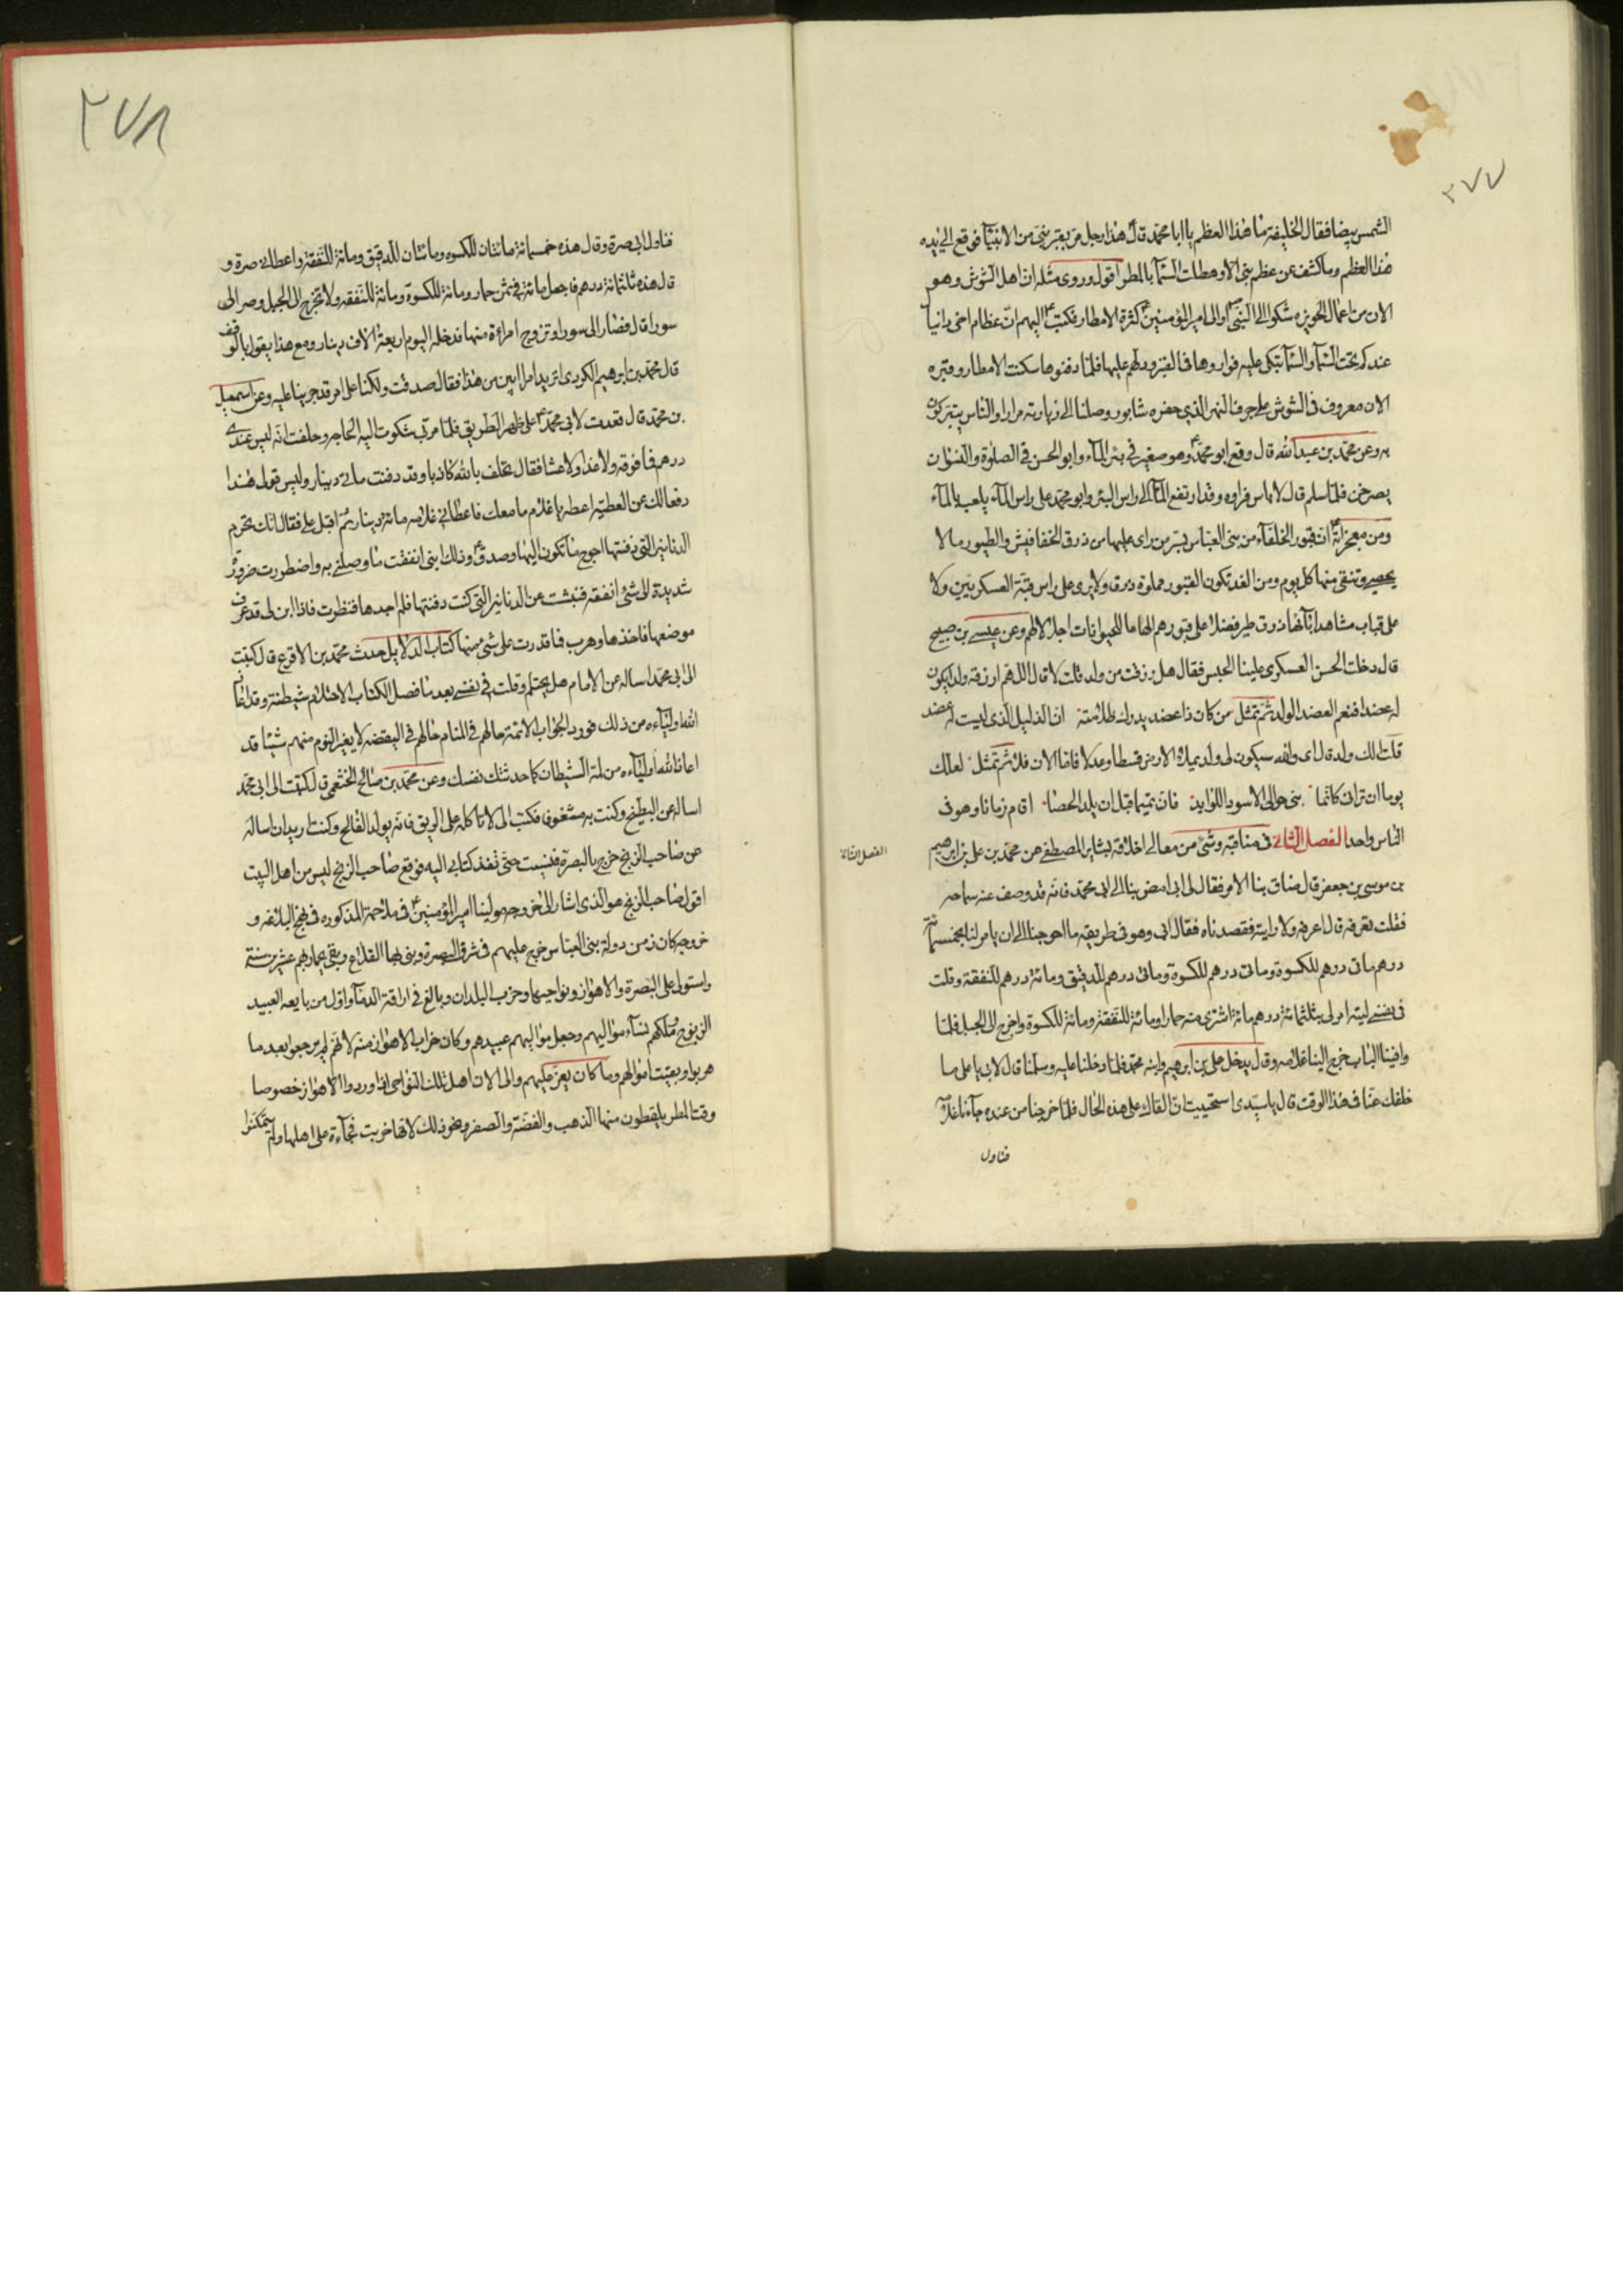 ٢٧٧
الشمس بيضا فقال الخليفة ما هذا العظم يا ابا محمد قال هذا رجل مر بقبر نبي من الانبيآ فوقع الى يده
هذا العظم وما كشف عن عظم نبي الا وهطلت السمآ بالمطر اقول وروى مثله ان اهل الشوش وهو
الان من اعمال الحويزه شكوا الى النبي او الى امير المؤمنين ع كثرة الامطار فكتب ع اليهم ان عظام اخي دانيا
عندكم تحت السمآ والسمآ تبكي عليه فواروها في القبر ودلهم عليها فلما دفنوها سكنت الامطار وقبره
الان معروف في الشوش على جرف النهر الذي حفره شابور وصلنا الى زيارته مرارا والناس يتبركون
به وعن محمد بن عبد الله قال وقع ابو محمد ع وهو صغير في بئر المآء وابو الحسن في الصلوة والنسوان
يصرخن فلما سلم قال لا باس فراوه وقد ارتفع المآء الى راس البئر وابو محمد على راس المآء يلعب بالمآء
ومن معجزاته ان قبور الخلفآء من بني العباس بسر من راى عليها من ذرق الخفافيش والطيور ما لا
يحصى وتنقى منها كل يوم ومن الغد تكون القبور مملوة ذرقا ولا يرى على راس قبة العسكريين ولا
على قباب مشاهد ابآئهما ذرق طير فضلا على قبورهم الهاما للحيوانات اجلالا لهم وعن عيسى بن صبيح
قال دخلت الحسن العسكري علينا الحبس فقال هل رزقت من ولد قلت لا قال اللهم ارزقه ولدا يكون
له عضدا فنعم العضد الولد ثم تمثل من كان ذا عضد يدرك ظلامته ان الذليل الذي ليست له عضد
قلت الك ولد قال اى والله سيكون لي ولد يملا الارض قسطا وعدلا فاما الان فلا ثم تمثل لعلك
يوما ان تراني كانما بني حوالى الاسود اللوابد فان تميما قبل ان يلد الحصا اقام زمانا وهو في
الناس واحد الفصل الثاني في مناقبه وشئ من معالى اخلاقه بشاير المصطفى عن محمد بن علي بن ابرهيم
الفصل الثاني
بن موسى بن جعفر قال ضاق بنا الامر فقال لي ابي امض بنا الى ابي محمد فانه قد وصف عنه سماحه
فقلت تعرفه قال اعرفه ولا رايته فقصدناه فقال ابي وهو في طريقه ما احوجنا الى ان يامر لنا بخمسمائة
درهم مائتي درهم للكسوة ومائتي درهم للدقيق ومائة درهم للنفقة وقلت
في نفسي ليته امر لي بثلثمائة درهم مائة اشتري منه حمارا ومائة للنفقة ومائة للكسوة واخرج الى الجبل فلما
وافينا الباب خرج الينا غلامه وقال يدخل علي بن ابرهيم وابنه محمد فلما دخلنا عليه وسلمنا قال لابي يا علي ما
خلفك عنا في هذا الوقت قال يا سيدي استحييت ان القاك على هذه الحال فلما خرجنا من عنده جآءنا غلامه
فناول
٢٧٨
فناول ابي صرة وقال هذه خمسمائة مائتان للكسوه ومائتان للدقيق ومائة للنفقة واعطاني صرة و
قال هذه ثلثمائة درهم فاجعل مائة في ثمن حمار ومائة للكسوة ومائة للنفقه ولا تخرج الى الجبل وصر الى
سورا قال فصار الى سورا وتزوج امراءة منها فدخله اليوم اربعة الاف دينار ومع هذا يقول بالوقف
قال محمد بن ابرهيم الكردي اتريد امرا ابين من هذا فقال صدقت ولكنا على امر قد جرينا عليه وعن اسمعيل
بن محمد قال قعدت لابي محمد ع على ظهر الطريق فلما مر بي شكوت اليه الحاجه وحلفت انه ليس عندي
درهم فما فوقه ولا غدا ولا عشا فقال تحلف بالله كاذبا وقد دفنت مائتي دينار وليس قولي هذا
دفعا لك عن العطية اعطه يا غلام ما معك فاعطاني غلامه مائة دينار ثم اقبل علي فقال انك تحرم
الدنانير التي دفنتها احوج ما تكون اليها وصدق ع وذلك انني انفقت ما وصلني به واضطررت ضرورة
شديدة الى شئ انفقه فنبشت عن الدنانير التي كنت دفنتها فلم اجدها فنظرت فاذا ابن لي قد عرف
موضعها فاخذها وهرب فما قدرت على شئ منها كتاب الدلايل حدث محمد بن الاقرع قال كتبت
الى ابي محمد اساله عن الامام هل يحتلم وقلت في نفسي بعد ما فصل الكتاب الاحتلام شيطنة وقد اعاذ
الله اوليآءه من ذلك فورد الجواب الائمة حالهم في المنام حالهم في اليقضه لا يغير النوم منهم شيئا قد
اعاذ الله اوليآءه من لمة الشيطان كما حدثتك نفسك وعن محمد بن صالح الخثعمي قال كتبت الى ابي محمد
اساله عن البطيخ وكنت به مشغوفا فكتب الي لا تاكله على الريق فانه يولد الفالج وكنت اريد ان اساله
عن صاحب الزنج خرج بالبصرة فنسيت حتى نفذ كتابي اليه فوقع صاحب الزنج ليس من اهل البيت
اقول صاحب الزنج هو الذي اشار الى خروجه مولينا امير المؤمنين ع في ملاحمه المذكوره في نهج البلاغه و
خروجه كان زمن دولة بني العباس خرج عليهم في شرقي البصرة وبنى بها القلاع وبقي يحاربهم عشرين سنة
واستولى على البصرة والاهواز ونواحيها وخرب البلدان وبالغ في اراقة الدمآء واول من بايعه العبيد
الزنوج وملكهم نسآء مواليهم وجعل مواليهم عبيدهم وكان خراب الاهواز منه لانهم لم يرجعوا بعد ما
هربوا وبقيت اموالهم وما كان يعز عليهم والى الان اهل تلك النواحي اذا وردوا الاهواز خصوصا
وقت المطر يلقطون منها الذهب والفضة والصفر ونحو ذلك لانها خربت فجآءة على اهلها ولم يتمكنوا